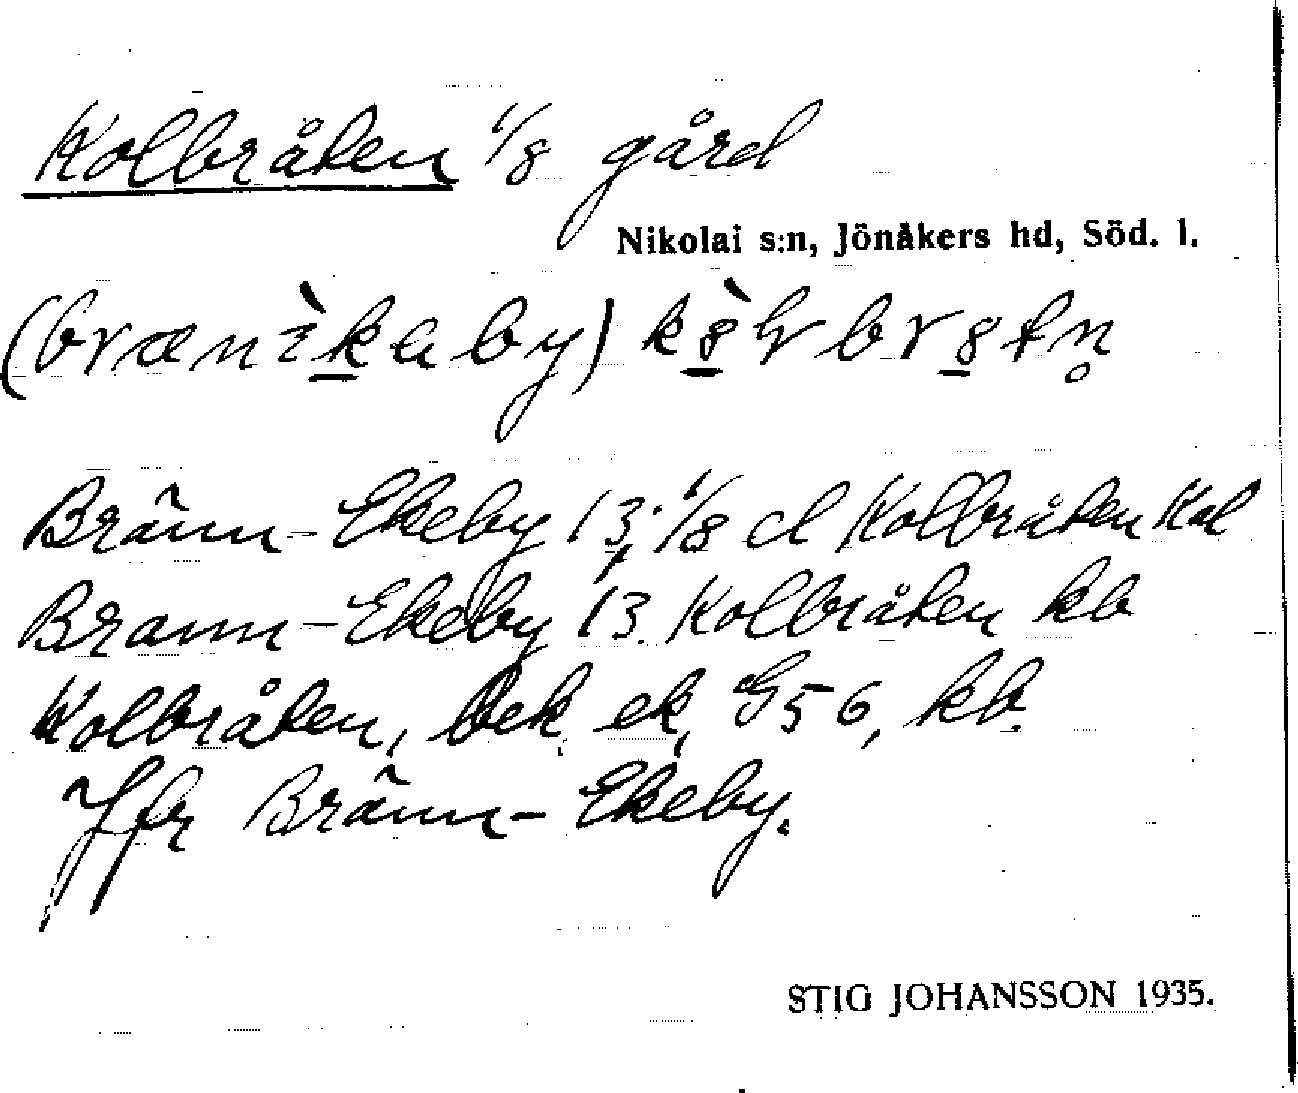 Kolbråten 1/8 gård
Nikolai s:n, Jönåkers hd, Söd. l.
Bränn-Ekeby 13; 1/8 d Kolbråten Kal
Brann-Ekeby 13. Kolbråten kb
Kolbråten, bek. ek, G56, kb.
Jfr Bränn-Ekeby.
STIG JOHANSSON 1935.